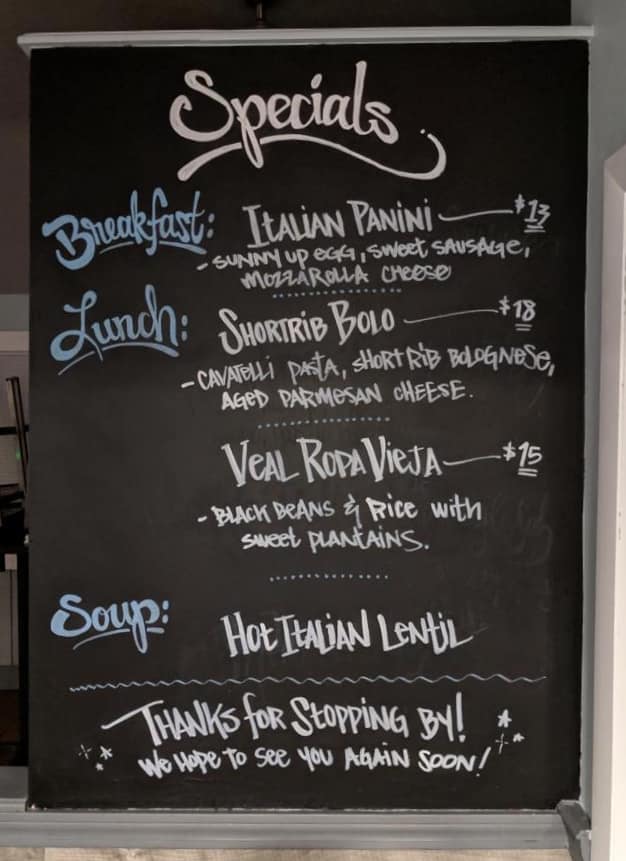 Specials
Breakfast: Italian Panini $13
- Sunny up egg, sweet sausage,
mozzarolla cheese
Lunch: Shortrib Bolo $18
- Cavatelli pasta, short rib bolognese,
aged parmesan cheese.
Veal Ropa Vieja $15
- Black beans & rice with
sweet plantains.
Soup: Hot Italian Lentil
Thanks for stopping by!
We hope to see you again soon!